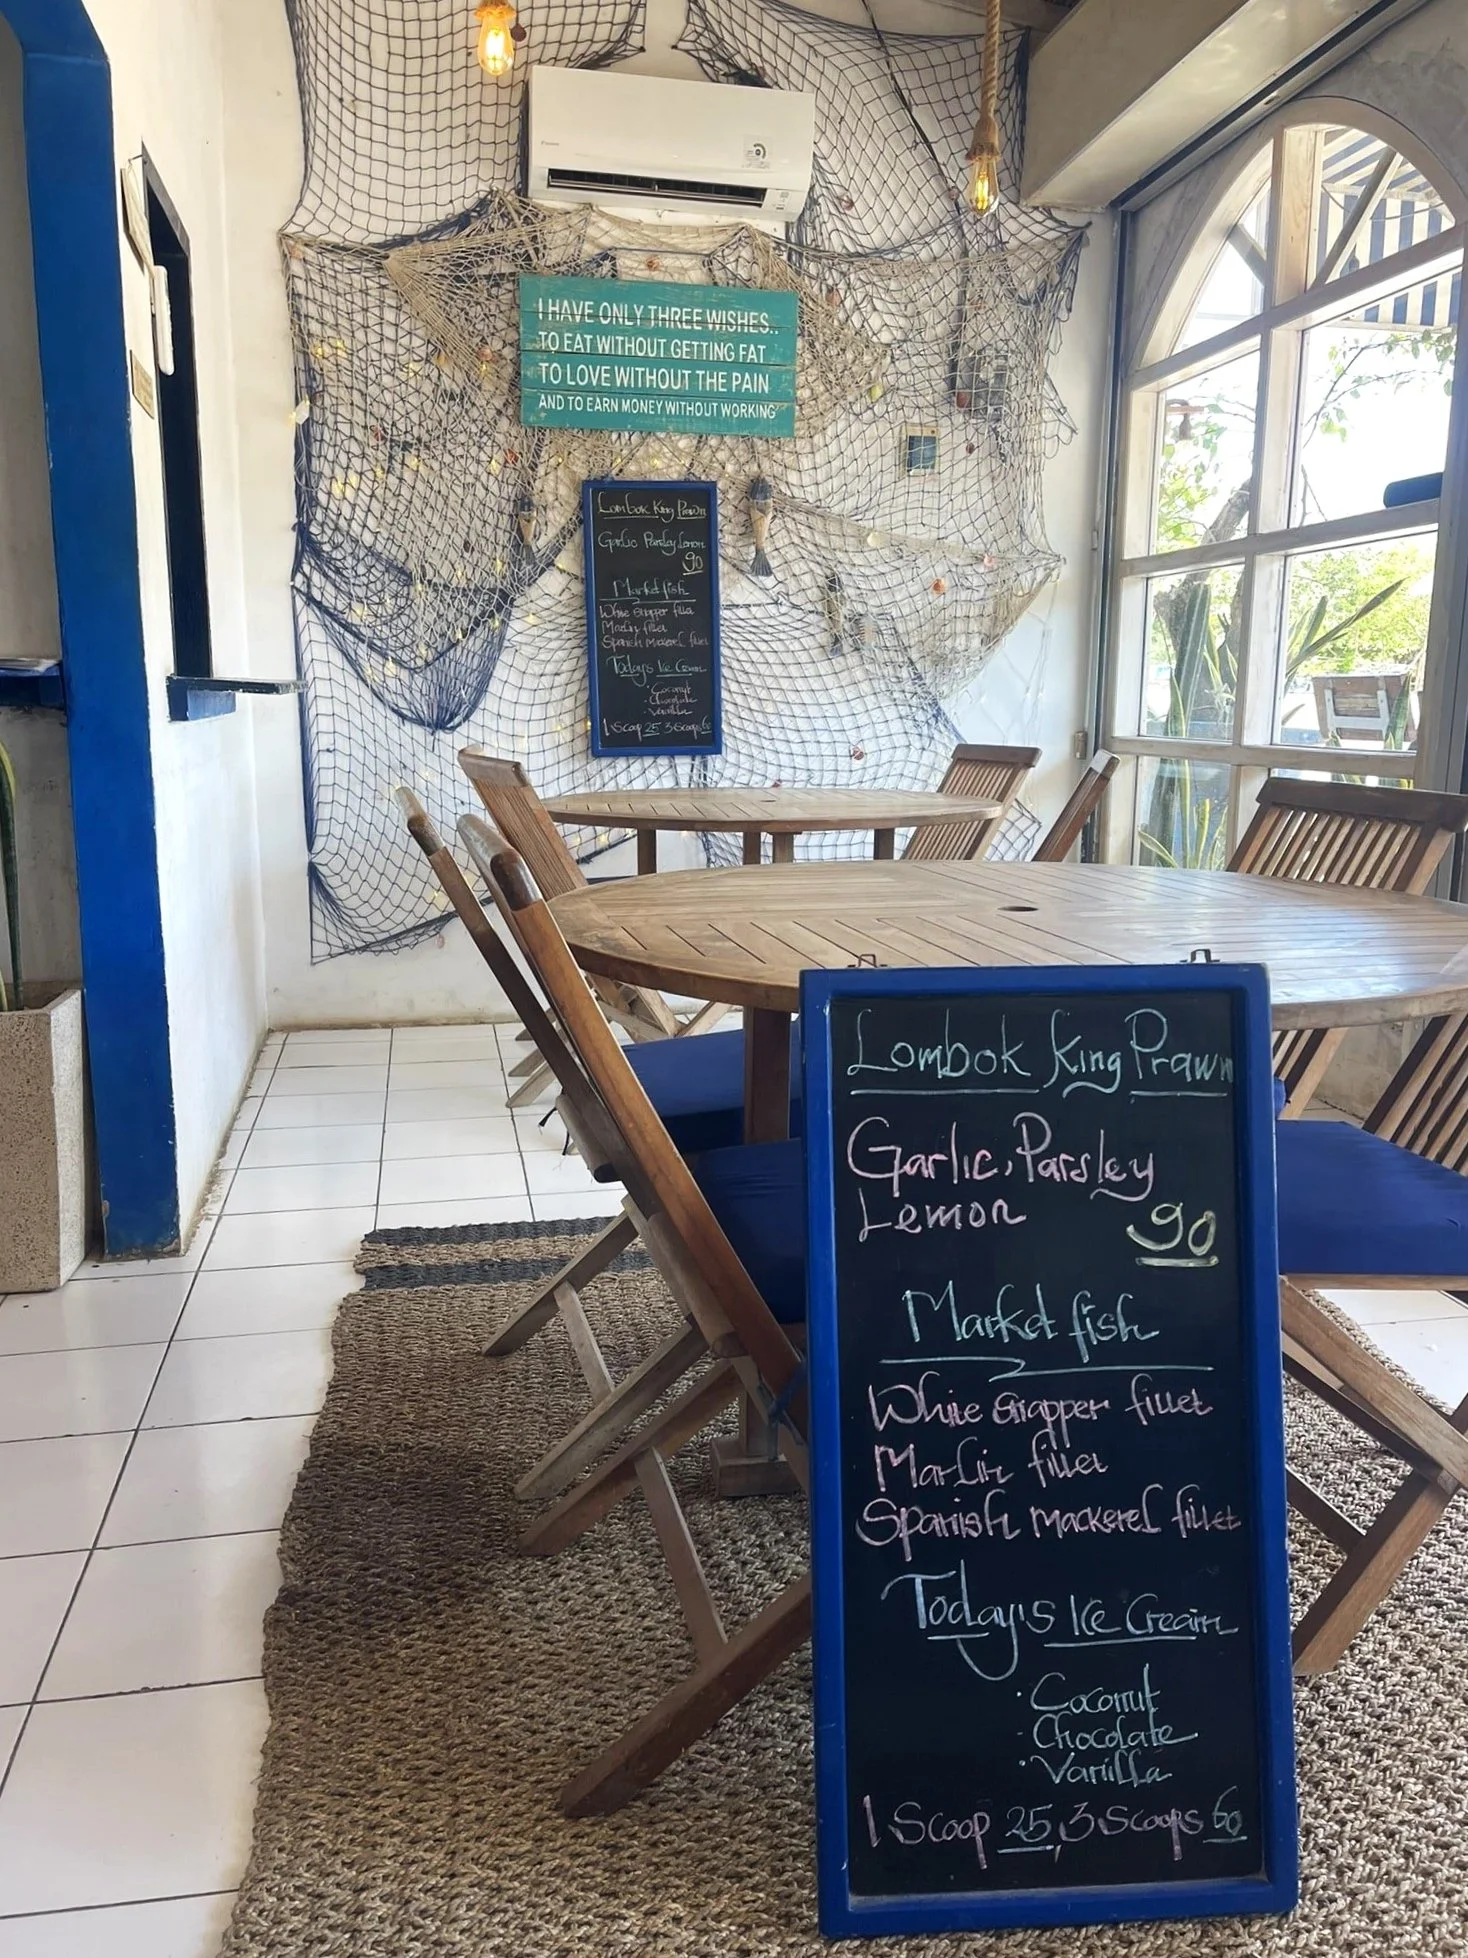 I HAVE ONLY THREE WISHES..
TO EAT WITHOUT GETTING FAT
TO LOVE WITHOUT THE PAIN
AND TO EARN MONEY WITHOUT WORKING
Lombok King Prawn
Garlic Parsley Lemon
90
Market fish
White snapper fillet
Marlin fillet
Spanish mackerel fillet
Today's Ice Cream
· Coconut
· Chocolate
· Vanilla
1 Scoop 25 3 Scoops 60
Lombok King Prawn
Garlic, Parsley
Lemon
90
Market fish
White snapper fillet
Marlin fillet
Spanish mackerel fillet
Today's Ice Cream
· Coconut
· Chocolate
· Vanilla
1 Scoop 25, 3 Scoops 60